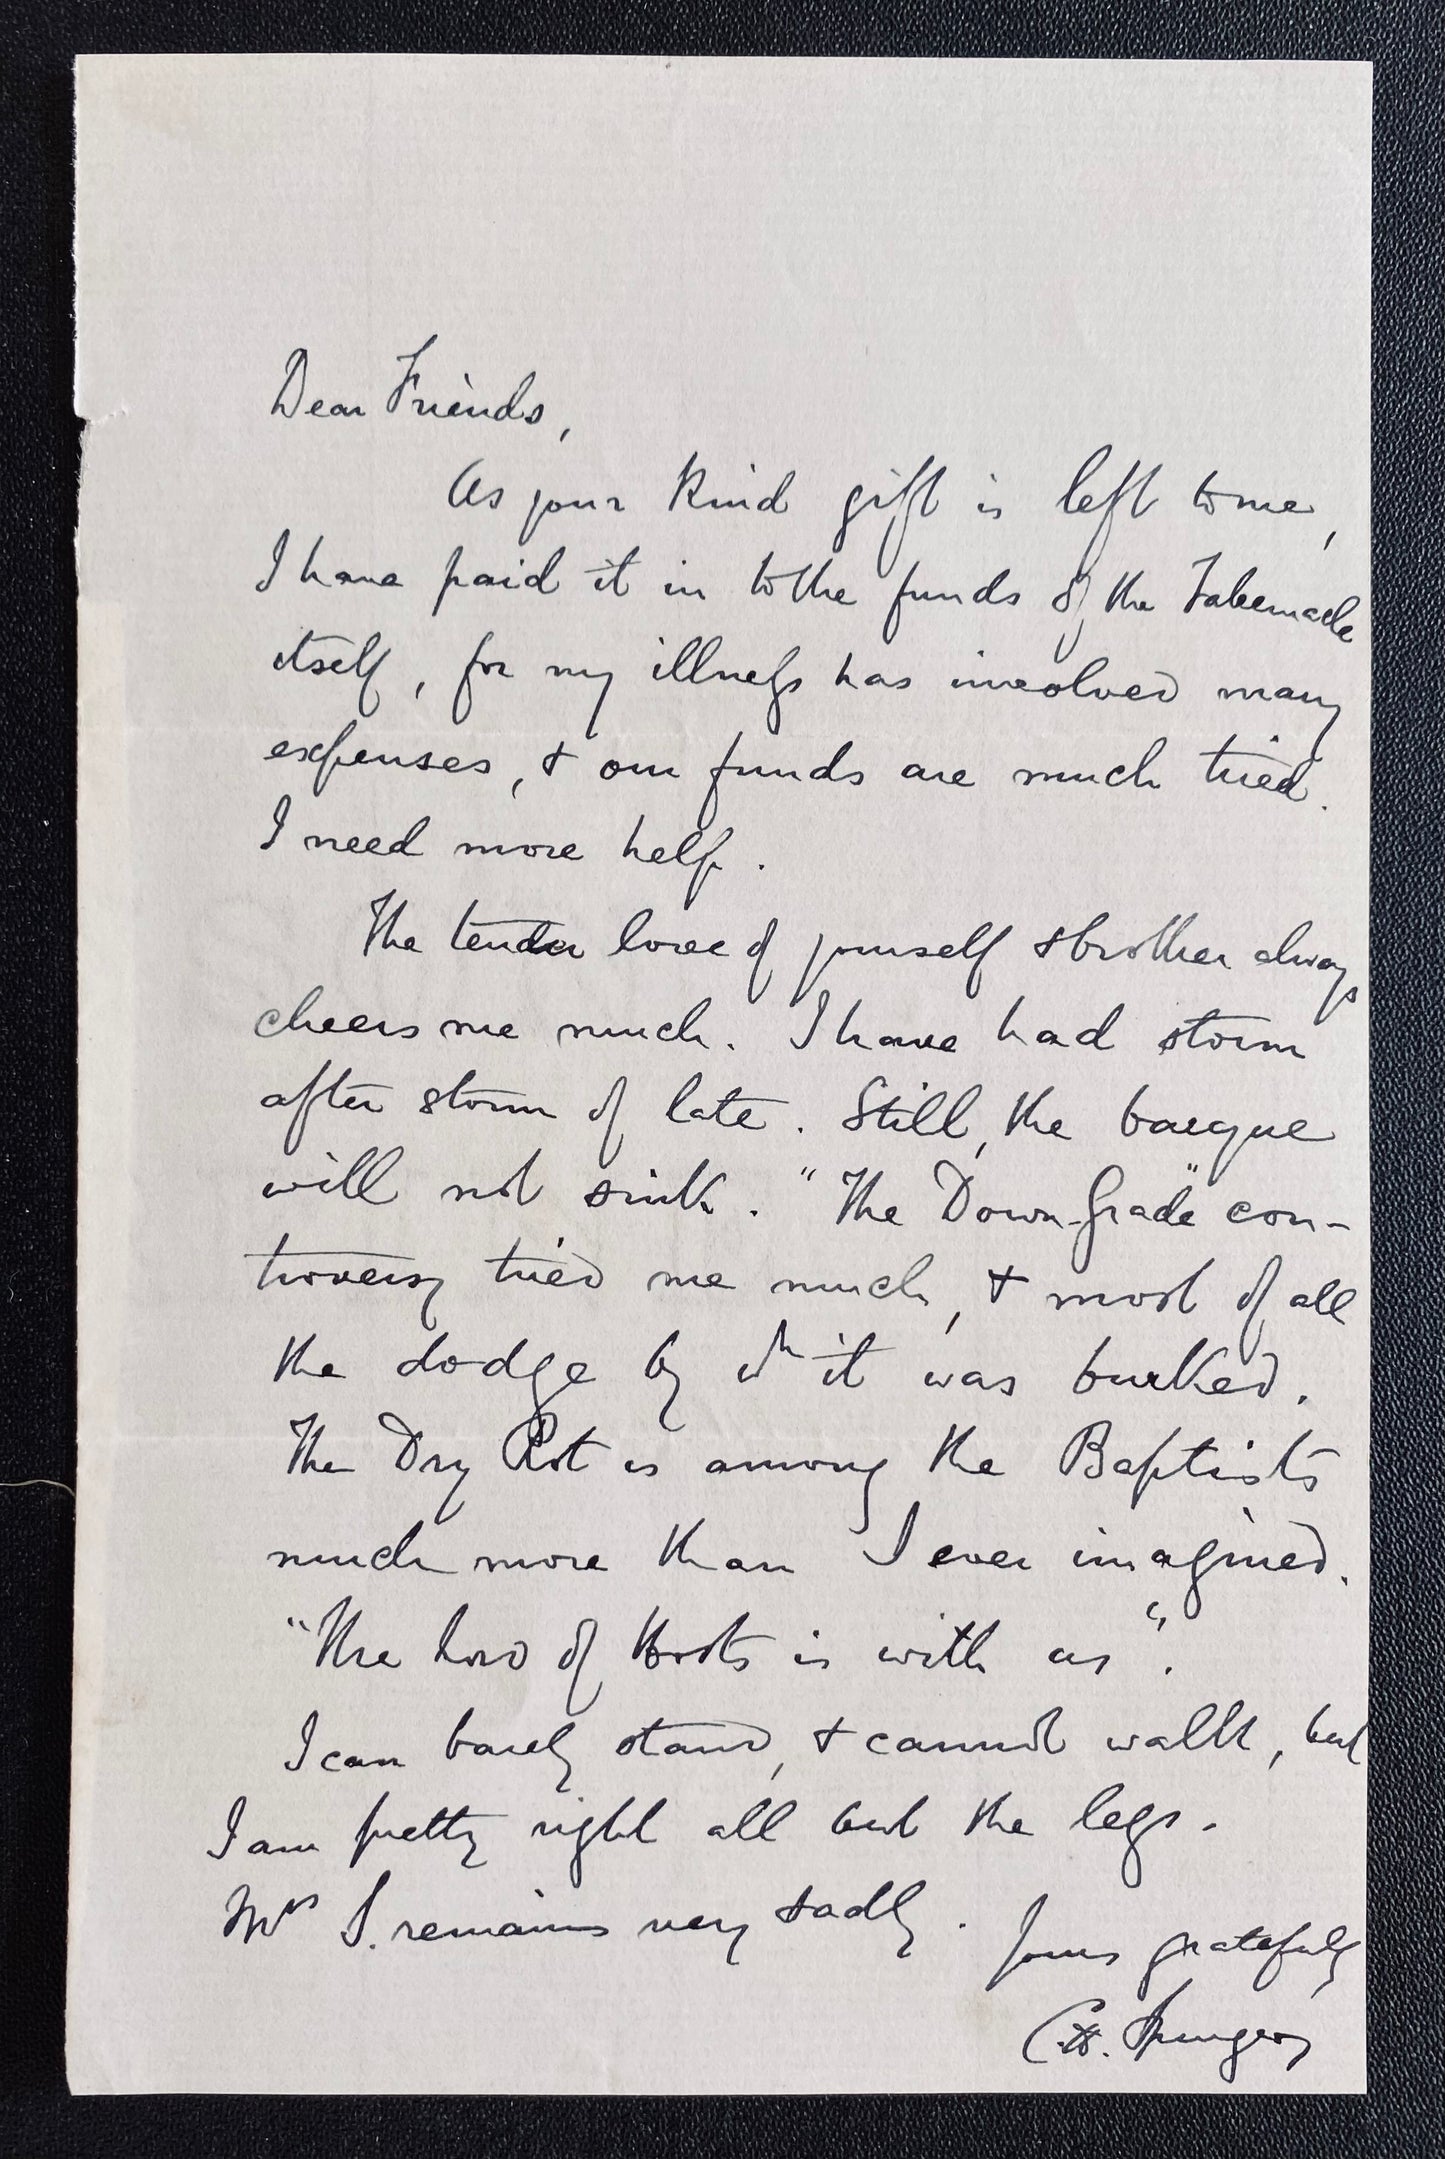 Dear Friends,
As your kind gift is left to me,
I have paid it in to the funds of the Tabernacle
itself, for my illness has involved many
expenses, & our funds are much tried.
I need more help.
The tender love of yourself & brother always
cheers me much. I have had storm
after storm of late. Still, the barque
will not sink. "The Down-Grade" con-
troversy tried me much, & most of all
the dodge by wh it was burked.
The Dry Rot is among the Baptists
much more than I ever imagined.
"The Lord of Hosts is with us".
I can barely stand, & cannot walk, but
I am pretty right all but the legs.
Mrs S. remains very sadly. Yours gratefully
C. H. Spurgeon